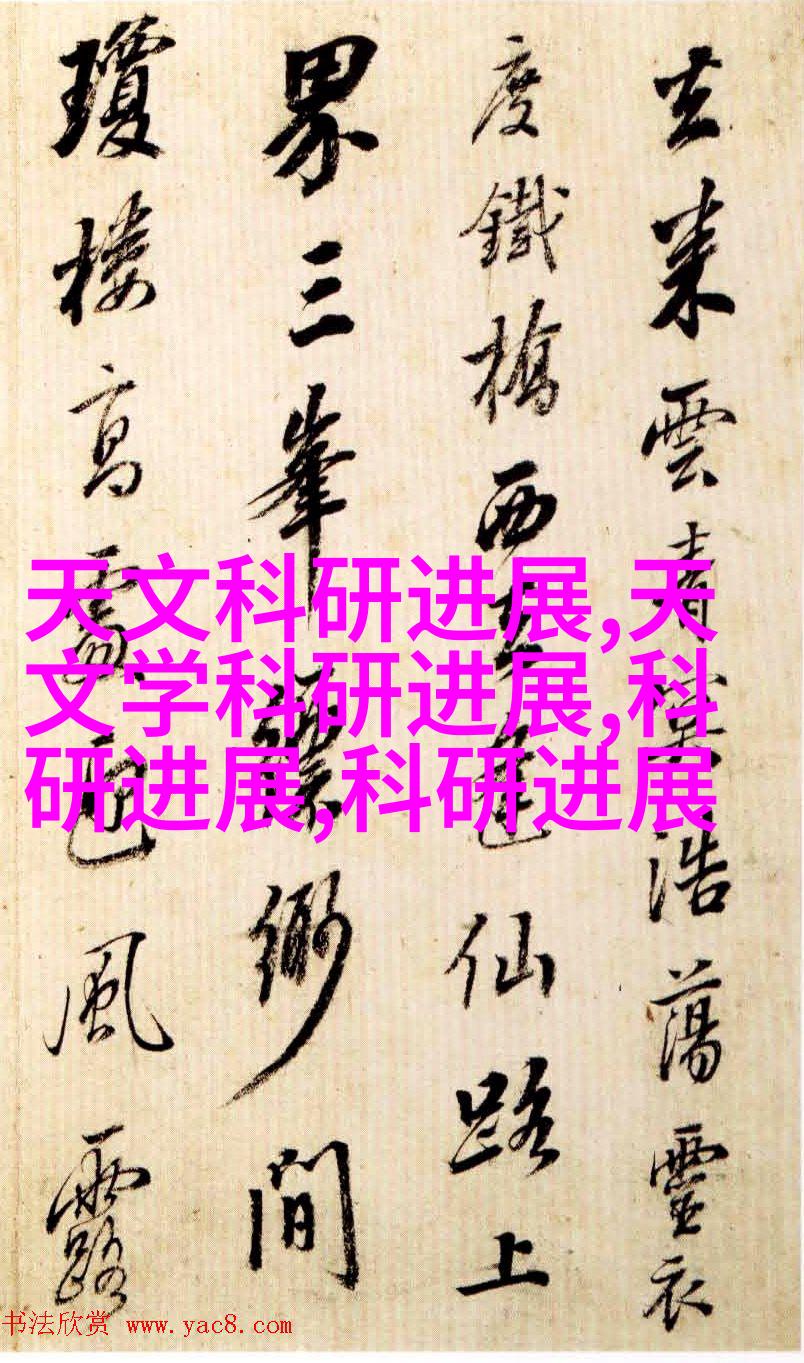 去来雲青冥浩蕩靈衣
度鐵橋西仙路上
界三峯縹緲間
瓊樓高處風露
天文科研进展,天
文学科研进展,科
研进展,科研进展
书法欣赏 www.yac8.com